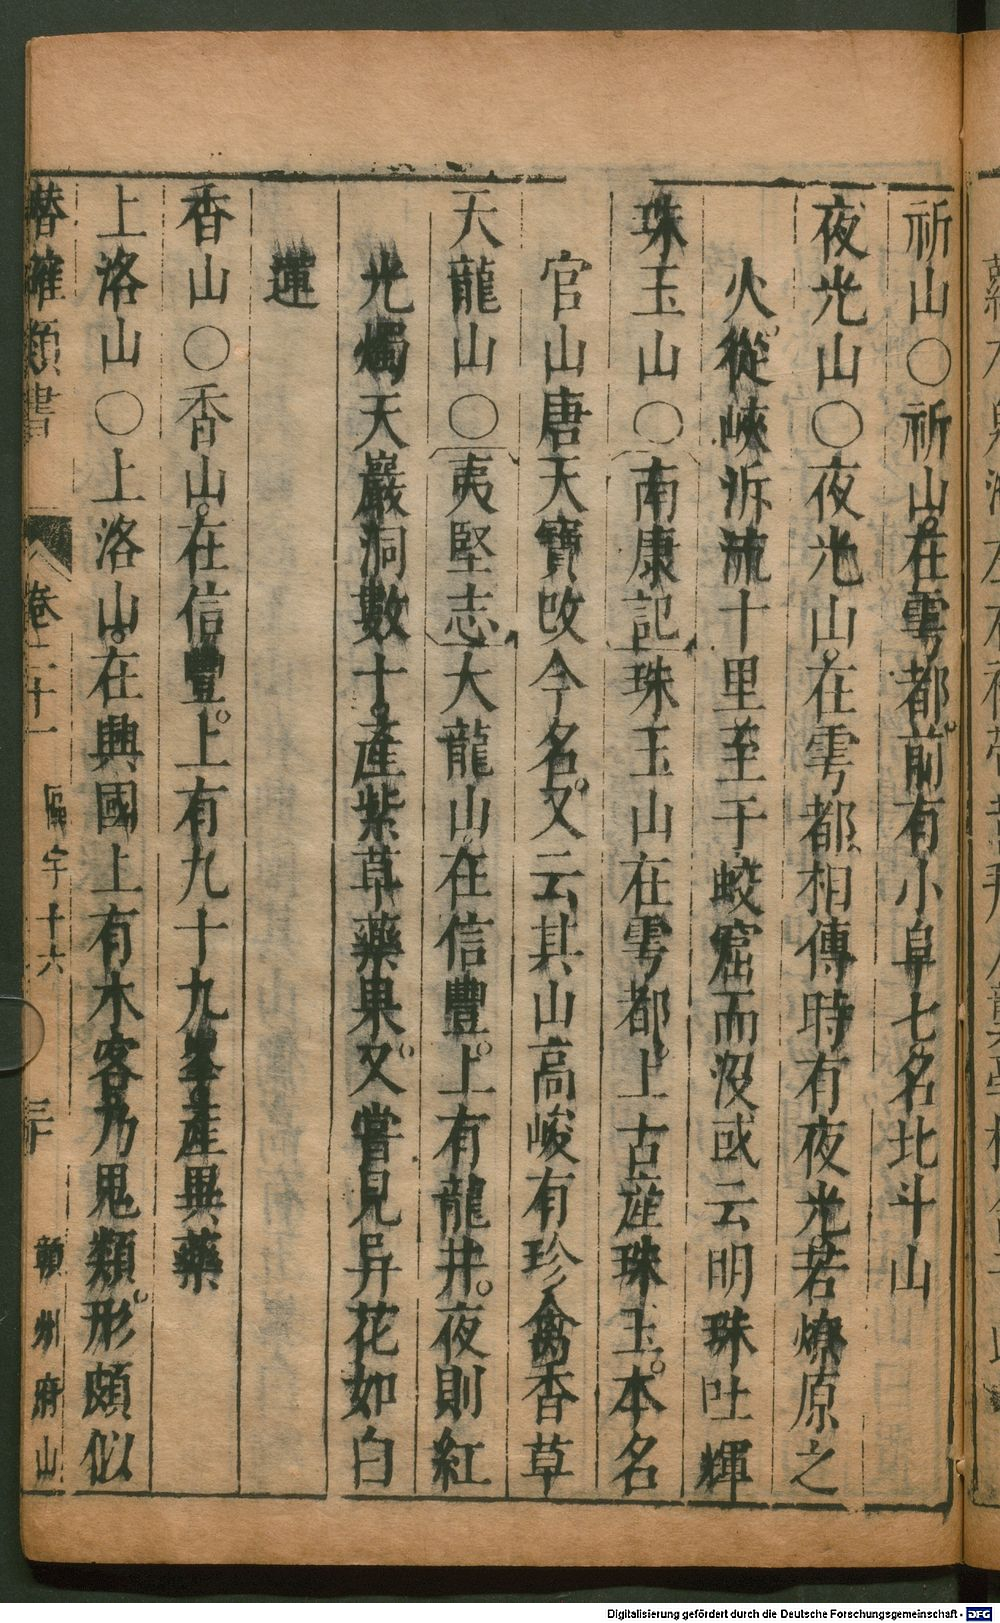 祈山○祈山在雩都前有小阜七名北斗山
夜光山○夜光山在雩都相傳時有夜光若燎原之
火從峽泝流十里至于蛟窟而沒或云明珠吐輝
珠玉山○南康記珠玉山在雩都上古產珠玉本名
官山唐天寶改今名又云其山高峻有珍禽香草
大龍山○夷堅志大龍山在信豐上有龍井夜則紅
光燭天巖洞數十產紫草藥果又嘗見异花如白
蓮
香山○香山在信豐上有九十九峯產異藥
上洛山○上洛山在興國上有木客乃鬼類形頗似
潛確類書 卷二十一 區宇十六 三十 贛州府山
Digitalisierung gefördert durch die Deutsche Forschungsgemeinschaft - DFG